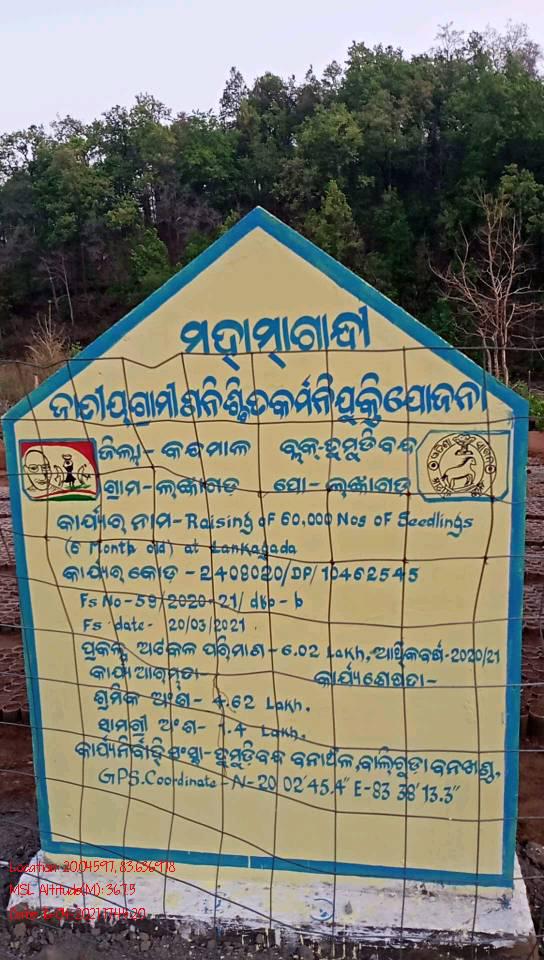 ମହାତ୍ମାଗାନ୍ଧୀ
ଜାତୀୟଗ୍ରାମୀଣନିଶ୍ଚିତକର୍ମନିଯୁକ୍ତିଯୋଜନା
ଜିଲ୍ଲା- କନ୍ଧମାଳ ବ୍ଲକ-ତୁମୁଡିବନ୍ଧ
ଗ୍ରାମ- ଲଙ୍କାଗଡ଼ ପୋ- ଲଙ୍କାଗଡ଼
କାର୍ଯ୍ୟର ନାମ- Raising of 60,000 Nos of Seedlings
(6 Month old) at Lankagada
କାର୍ଯ୍ୟର କୋଡ଼ - 2408020/DP/10462545
Fs No-59/2020-21/dkp-b
Fs date- 20/03/2021
ପ୍ରକଳ୍ପ ଅଟକଳ ପରିମାଣ- 6.02 Lakh, ଆର୍ଥିକବର୍ଷ-2020/21
କାର୍ଯ୍ୟ ଆରମ୍ଭତା- କାର୍ଯ୍ୟଶେଷତା-
ଶ୍ରମିକ ଅଂଶ- 4.62 Lakh.
ସାମଗ୍ରୀ ଅଂଶ- 1.4 Lakh.
କାର୍ଯ୍ୟନିର୍ବାହି ସଂସ୍ଥା- ତୁମୁଡିବନ୍ଧ ବନାଞ୍ଚଳ, ବାଲିଗୁଡ଼ା ବନଖଣ୍ଡ,
GPS. Coordinate- N-20 02'45.4" E-83 38'13.3"
Location: 20.04597, 83.636978
MSL Altitude(M): 367.5